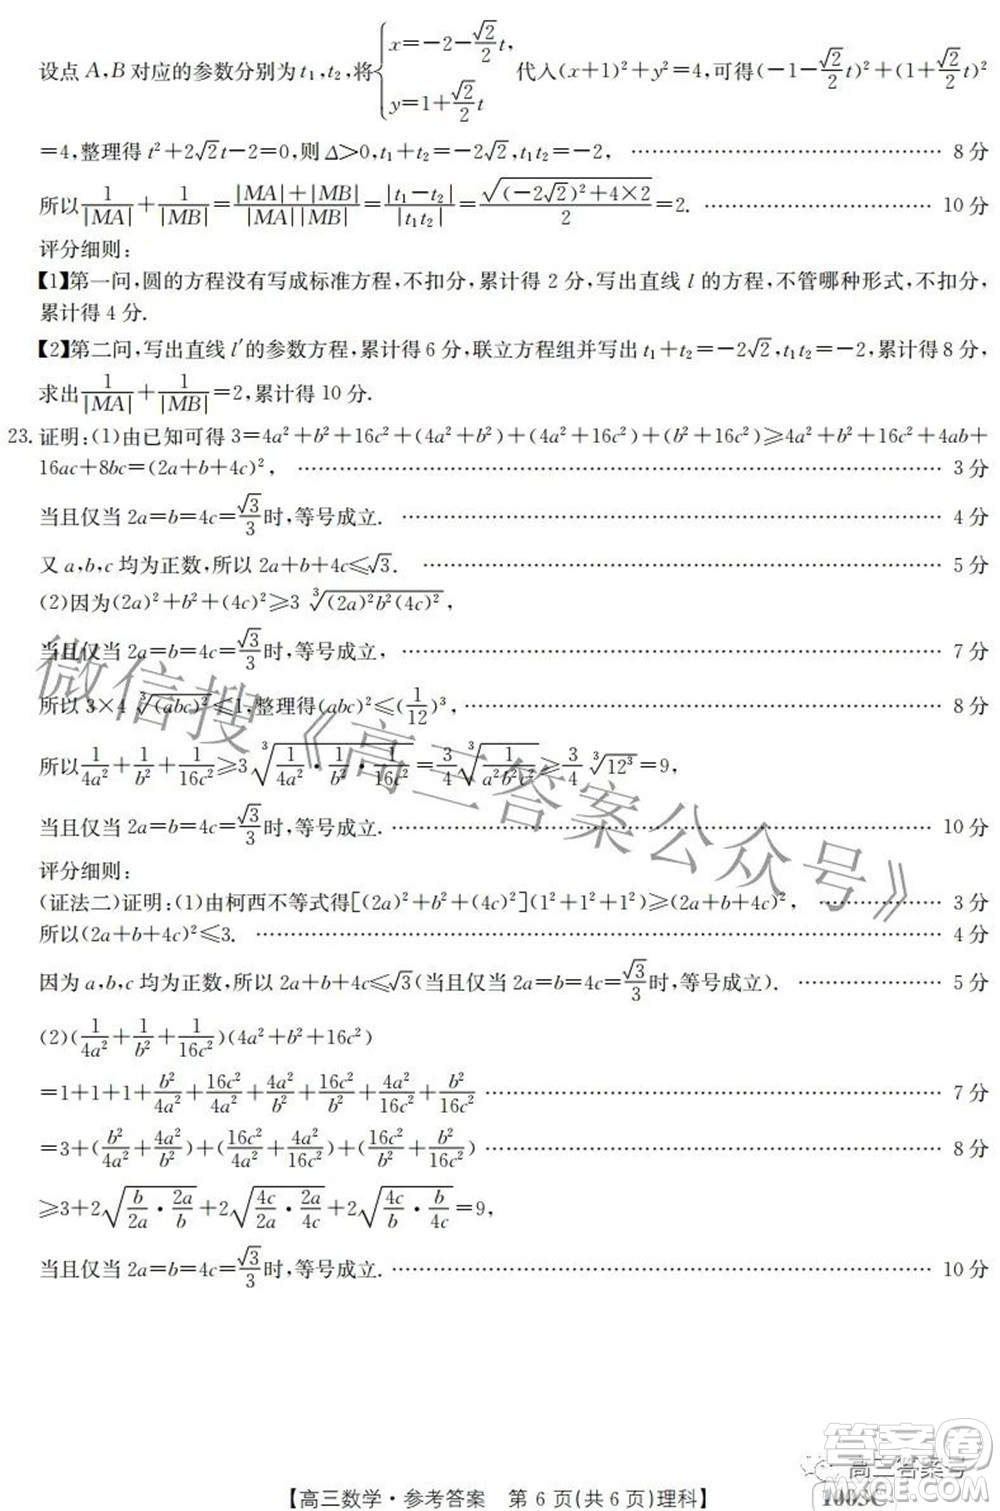 设点 A,B 对应的参数分别为 t₁,t₂,将{x=-2-(√2/2)t, y=1+(√2/2)t 代入(x+1)²+y²=4,可得(-1-(√2/2)t)²+(1+(√2/2)t)²
=4,整理得 t²+2√2t-2=0,则 Δ>0,t₁+t₂=-2√2,t₁t₂=-2, ………… 8 分
所以 1/|MA|+1/|MB|=(|MA|+|MB|)/(|MA||MB|)=|t₁-t₂|/|t₁t₂|=√((-2√2)²+4×2)/2=2. ………… 10 分
评分细则:
【1】第一问,圆的方程没有写成标准方程,不扣分,累计得 2 分,写出直线 l 的方程,不管哪种形式,不扣分,
累计得 4 分.
【2】第二问,写出直线 l′的参数方程,累计得 6 分,联立方程组并写出 t₁+t₂=-2√2,t₁t₂=-2,累计得 8 分,
求出 1/|MA|+1/|MB|=2,累计得 10 分.
23. 证明:(1)由已知可得 3=4a²+b²+16c²+(4a²+b²)+(4a²+16c²)+(b²+16c²)≥4a²+b²+16c²+4ab+
16ac+8bc=(2a+b+4c)², ………… 3 分
当且仅当 2a=b=4c=√3/3时,等号成立. ………… 4 分
又 a,b,c 均为正数,所以 2a+b+4c≤√3. ………… 5 分
(2)因为(2a)²+b²+(4c)²≥3 ³√((2a)²b²(4c)²),
当且仅当 2a=b=4c=√3/3时,等号成立, ………… 7 分
所以 3×4 ³√((abc)²)≤1,整理得(abc)²≤(1/12)³, ………… 8 分
所以 1/4a²+1/b²+1/16c²≥3 ³√(1/4a²·1/b²·1/16c²)=3/4 ³√(1/a²b²c²)≥3/4 ³√(12³)=9,
当且仅当 2a=b=4c=√3/3时,等号成立. ………… 10 分
评分细则:
(证法二)证明:(1)由柯西不等式得[(2a)²+b²+(4c)²](1²+1²+1²)≥(2a+b+4c)², ………… 3 分
所以(2a+b+4c)²≤3. ………… 4 分
因为 a,b,c 均为正数,所以 2a+b+4c≤√3(当且仅当 2a=b=4c=√3/3时,等号成立). ………… 5 分
(2)(1/4a²+1/b²+1/16c²)(4a²+b²+16c²)
=1+1+1+b²/4a²+16c²/4a²+4a²/b²+16c²/b²+4a²/16c²+b²/16c² ………… 7 分
=3+(b²/4a²+4a²/b²)+(16c²/4a²+4a²/16c²)+(16c²/b²+b²/16c²) ………… 8 分
≥3+2√(b/2a·2a/b)+2√(4c/2a·2a/4c)+2√(4c/b·b/4c)=9,
当且仅当 2a=b=4c=√3/3时,等号成立. ………… 10 分
微信搜《高三答案公众号》
答案圈
高三答案号
【高三数学·参考答案 第 6 页(共 6 页)理科】
1003C